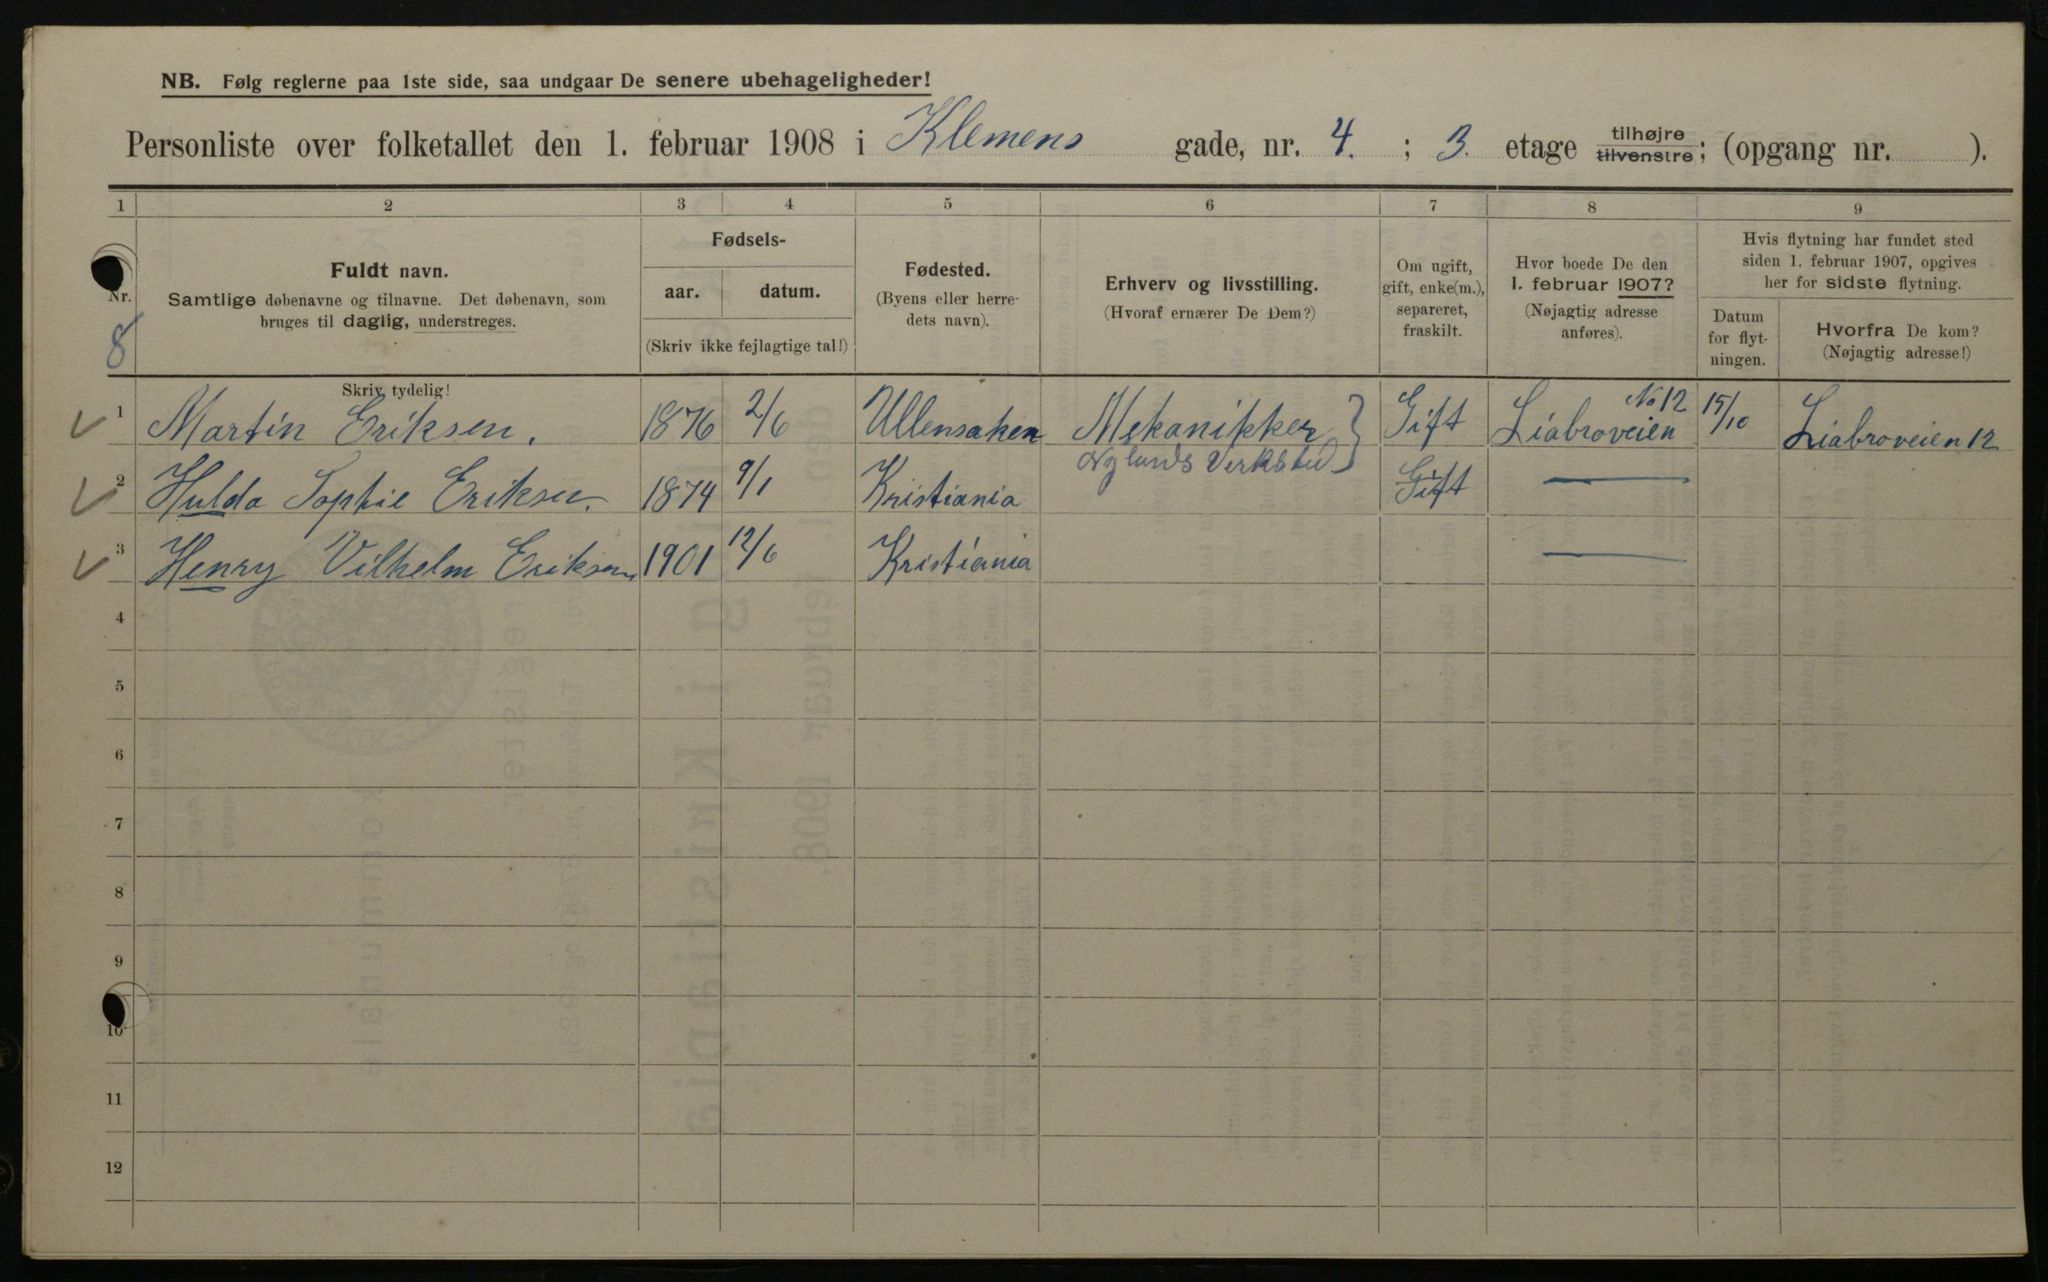 NB. Følg reglerne paa 1ste side, saa undgaar De senere ubehageligheder!
Personliste over folketallet den 1. februar 1908 i Klemens gade, nr. 4. ; 3. etage tilhøjre tilvenstre; (opgang nr. ).
1 2 3 4 5 6 7 8 9
Nr.
8
Fuldt navn.
Samtlige døbenavne og tilnavne. Det døbenavn, som
bruges til daglig, understreges.
Skriv tydelig!
Fødsels-
aar. datum.
(Skriv ikke fejlagtige tal!)
Fødested.
(Byens eller herre-
dets navn).
Erhverv og livsstilling.
(Hvoraf ernærer De Dem?)
Om ugift,
gift, enke(m.),
separeret,
fraskilt.
Hvor boede De den
1. februar 1907?
(Nøjagtig adresse
anføres).
Hvis flytning har fundet sted
siden 1. februar 1907, opgives
her for sidste flytning.
Datum
for flyt-
ningen.
Hvorfra De kom?
(Nøjagtig adresse!)
1 Martin Eriksen. 1876 2/6 Ullensaken Mekanikker Gift Liabroveien No 12 15/10 Liabroveien 12
Nylands Verksted
2 Hulda Sophie Eriksen. 1874 9/1 Kristiania Gift —
3 Henry Vilhelm Eriksen 1901 12/6 Kristiania —
4
5
6
7
8
9
10
11
12